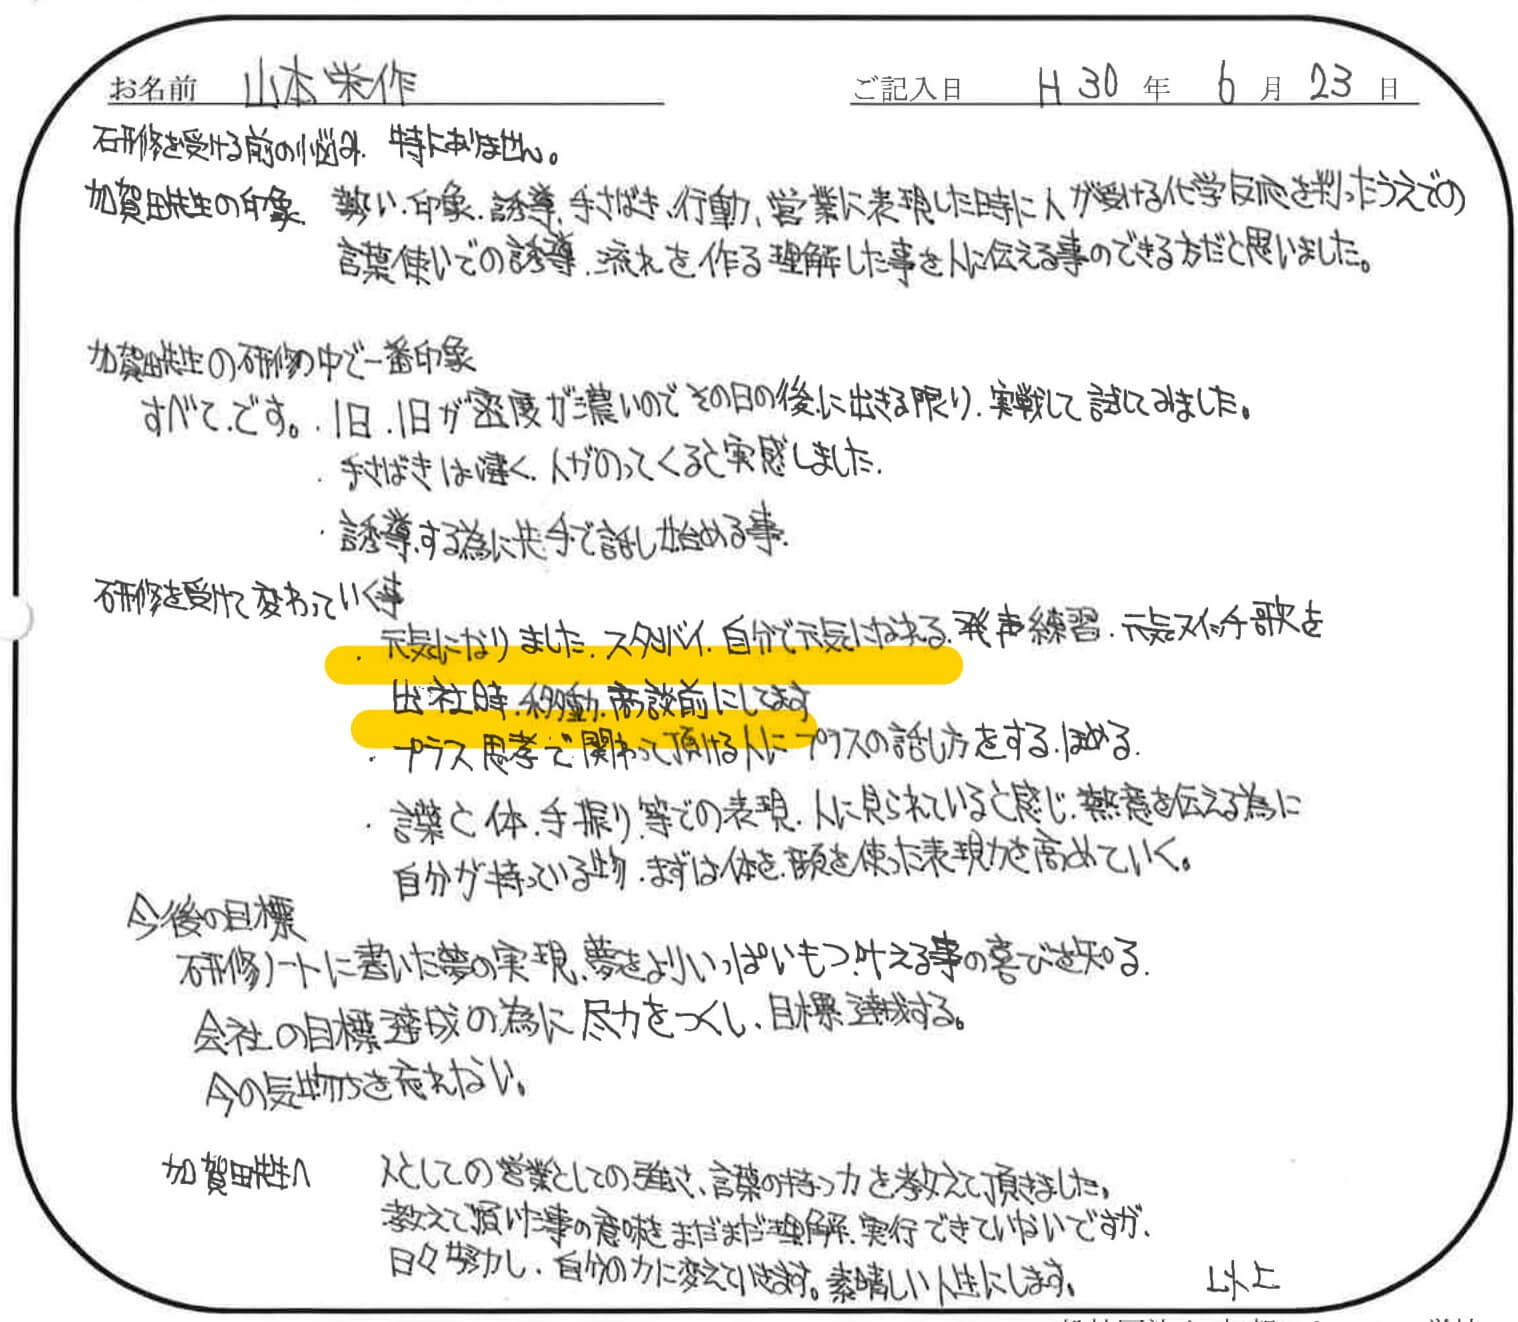 お名前 山本栄作 ご記入日 H30年 6月23日
研修を受ける前の悩み 特にありません。
加賀田先生の印象 勢い、印象、誘導、手さばき、行動、営業に表現した時に人が受ける化学反応を判ったうえでの
言葉使いでの誘導、流れを作る理解した事を人に伝える事のできる方だと思いました。
加賀田先生の研修の中で一番印象
すべて、です。・1日、1日が密度が濃いのでその日の後に出きる限り、実戦して試してみました。
・手さばきは凄く、人がのってくると実感しました。
・誘導する為に先手で話し始める事。
研修を受けて変わっていく事
・元気になりました、スタンバイ、自分で元気になれる、発声練習、元気スイッチ歌を
出社時、移動、商談前にしてます
・プラス思考で関わって頂ける人にプラスの話し方をする、ほめる、
・言葉と体、手振り等での表現、人に見られていると感じ、熱意を伝える為に
自分が持っている物、まずは体を、顔を使った表現力を高めていく。
今後の目標
研修ノートに書いた夢の実現、夢をよりいっぱいもつ、叶える事の喜びを知る、
会社の目標達成の為に尽力をつくし、目標達成する。
今の気持ちを忘れない。
加賀田先生へ 人としての営業としての強さ、言葉の持つ力を教えて頂きました。
教えて頂いた事の意味をまだまだ理解、実行できていないですが、
日々努力し、自分の力に変えていきます。素晴しい人生にします。 以上